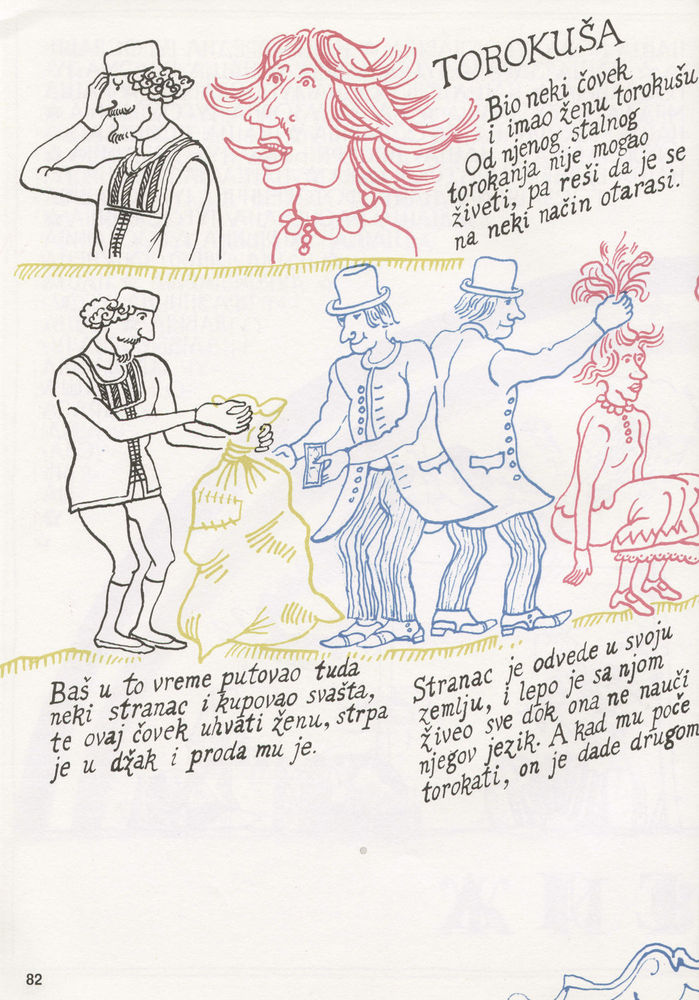 TOROKUŠA
Bio neki čovek
i imao ženu torokušu
Od njenog stalnog
torokanja nije mogao
živeti, pa reši da je se
na neki način otarasi.
Baš u to vreme putovao tuda
neki stranac i kupovao svašta,
te ovaj čovek uhvati ženu, strpa
je u džak i proda mu je.
Stranac je odvede u svoju
zemlju, i lepo je sa njom
živeo sve dok ona ne nauči
njegov jezik. A kad mu poče
torokati, on je dade drugom
82